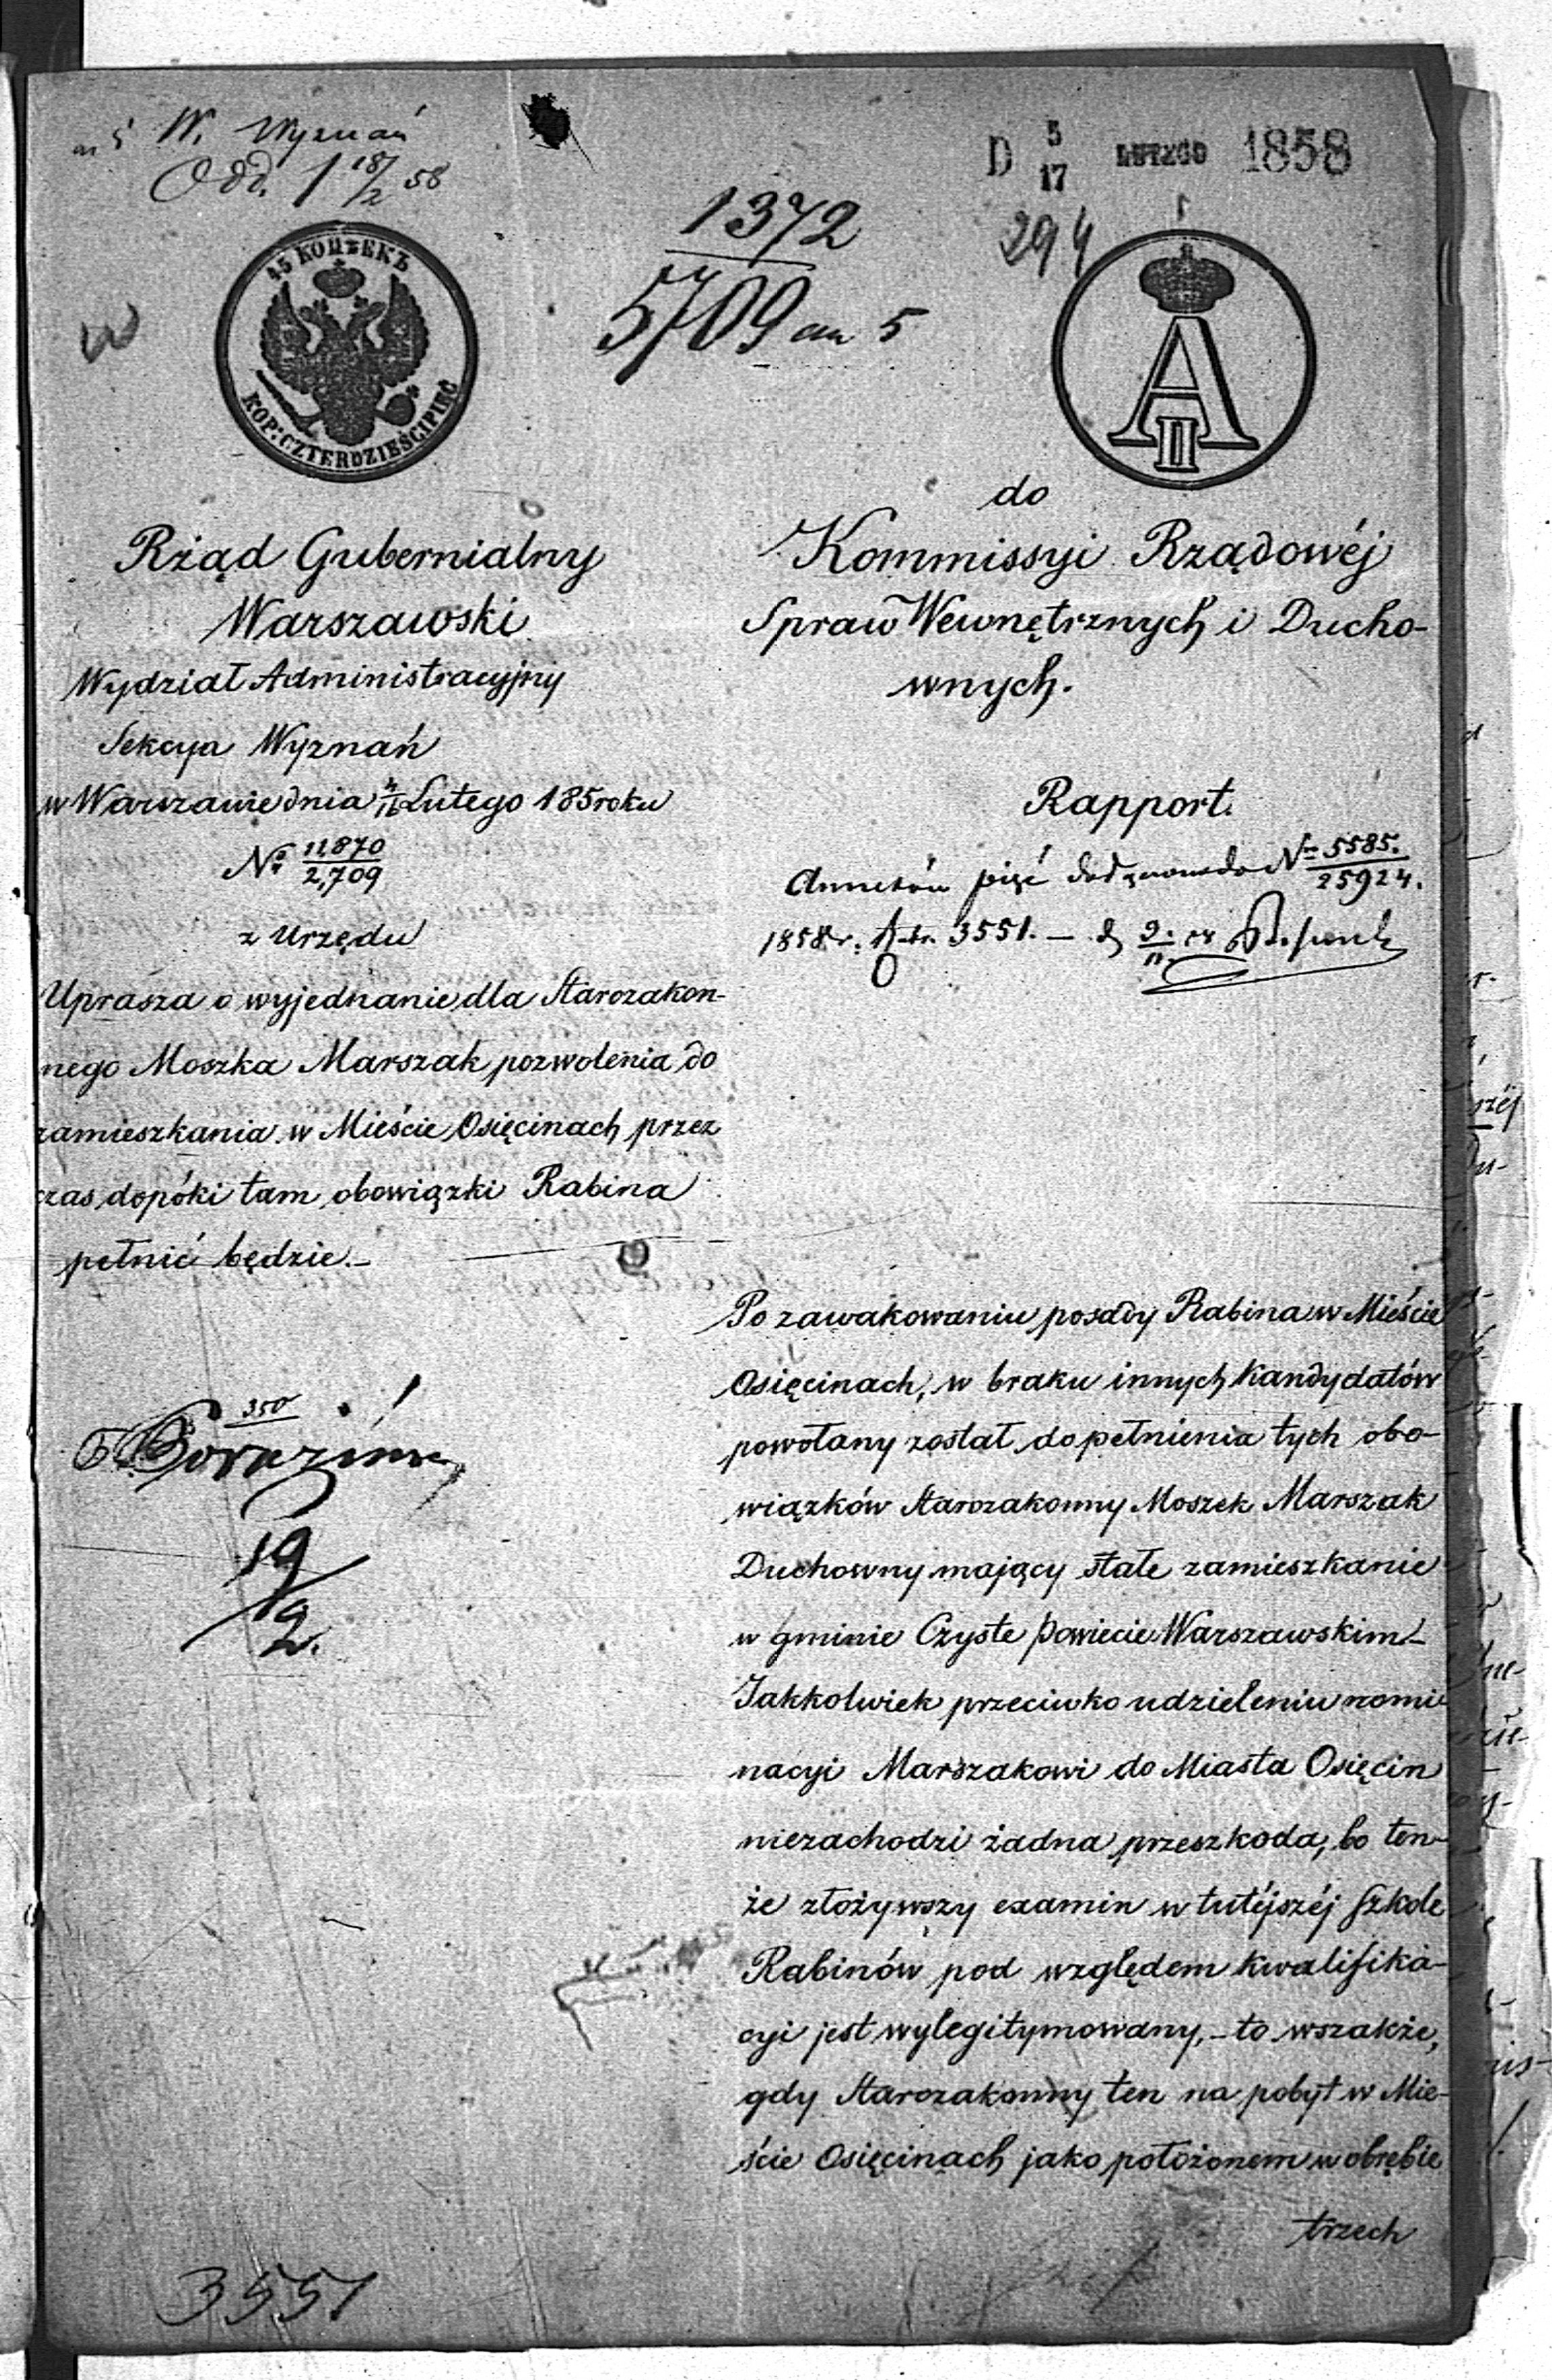 W. Wyznań
Odd. 1 18/2 58
D 5/17 LUTEGO 1858
1372
5709 an 5
294
45 КОПѢЕКЪ
KOP: CZTERDZIEŚCI PIĘĆ
A II
Rząd Gubernialny
Warszawski
Wydział Administracyjny
Sekcya Wyznań
w Warszawie dnia 4/16 Lutego 185 roku
No 11,870/2,709
z Urzędu
Uprasza o wyjednanie dla Starozakon-
nego Moszka Marszak pozwolenia do
zamieszkania w Mieście Osięcinach przez
czas dopóki tam obowiązki Rabina
pełnić będzie.-
350
19/2.
3551
do
Kommissyi Rządowéj
Spraw Wewnętrznych i Ducho-
wnych.
Rapport.
Annexów pięć do No 5585./25924.
1858 r. 3551. —
Po zawakowaniu posady Rabina w Mieście
Osięcinach, w braku innych Kandydatów
powołany został do pełnienia tych obo-
wiązków Starozakonny Moszek Marszak
Duchowny mający stałe zamieszkanie
w gminie Czyste Powiecie Warszawskim-
Jakkolwiek przeciwko udzieleniu nomi-
nacyi Marszakowi do Miasta Osięcin
niezachodzi żadna przeszkoda, bo ten-
że złożywszy examin w tutéjszéj Szkole
Rabinów pod względem kwalifika-
cyi jest wylegitymowany, - to wszakże,
gdy Starozakonny ten na pobyt w Mie-
ście Osięcinach jako położonem w obrębie
trzech